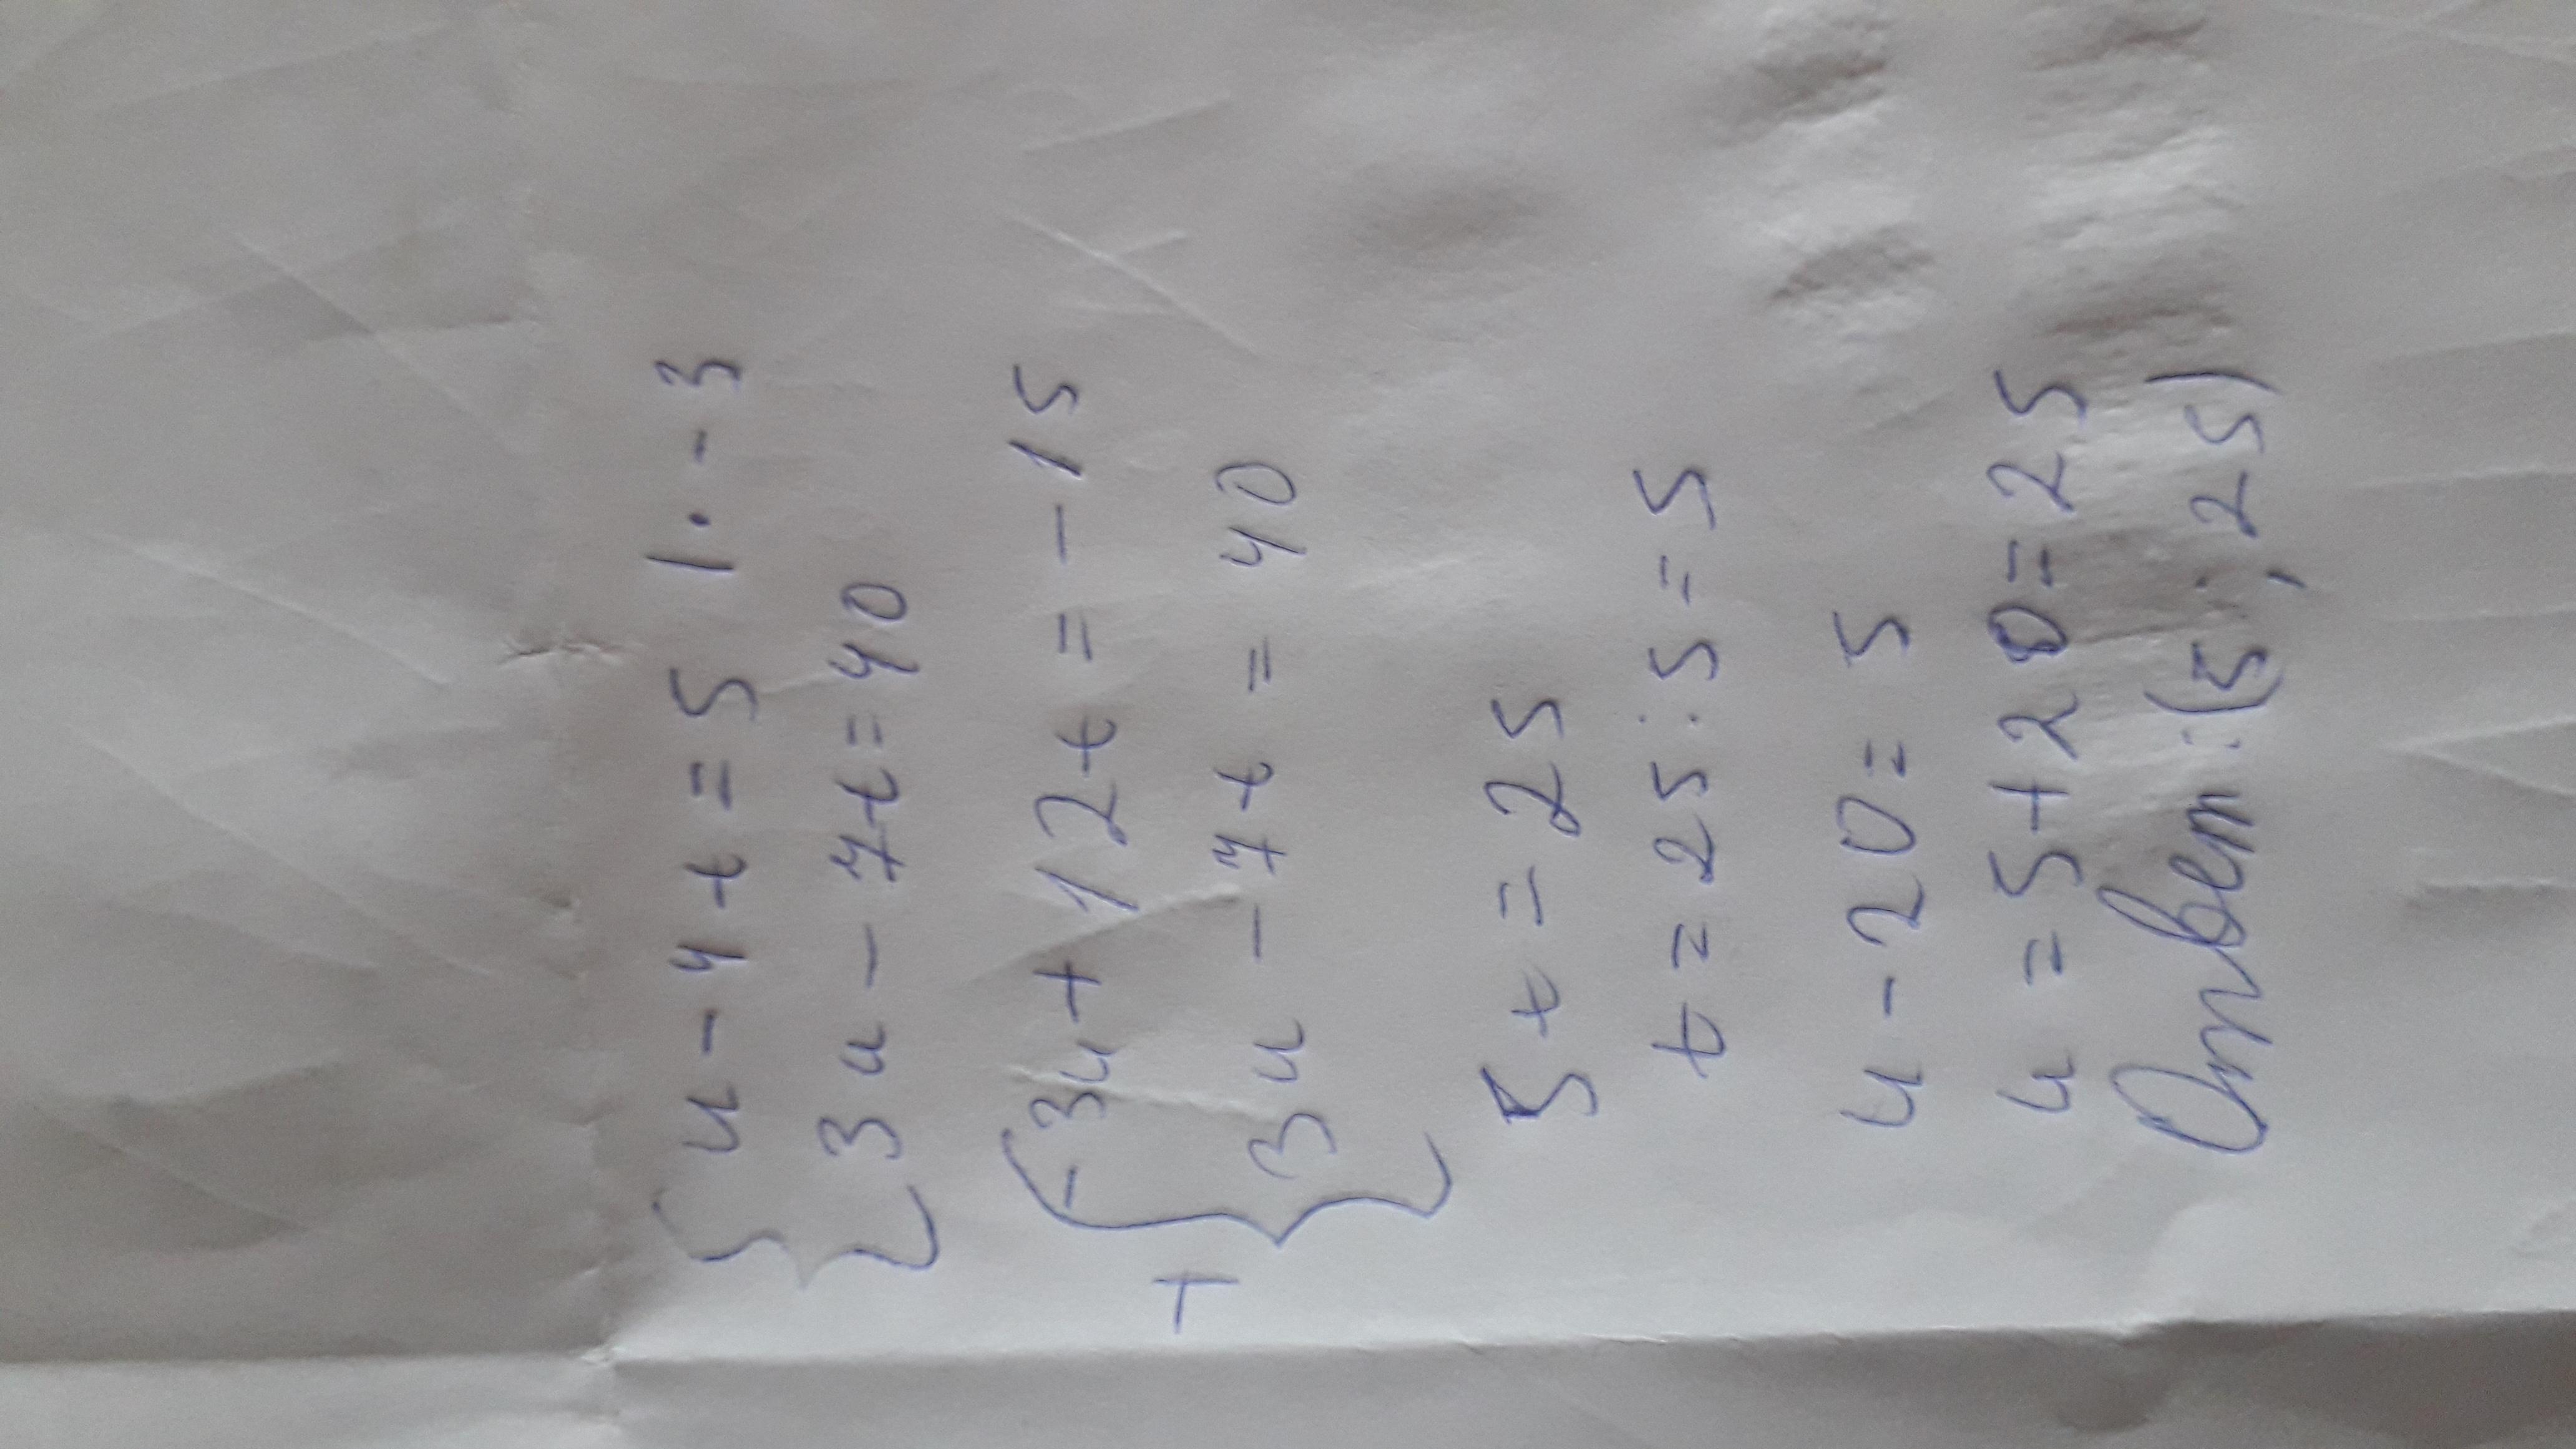 u - 4t = 5 | · - 3
3u - 7t = 40
- 3u + 12t = - 15
+
3u - 7t = 40
5t = 25
t = 25 : 5 = 5
u - 20 = 5
u = 5 + 20 = 25
Ответ: (5; 25)